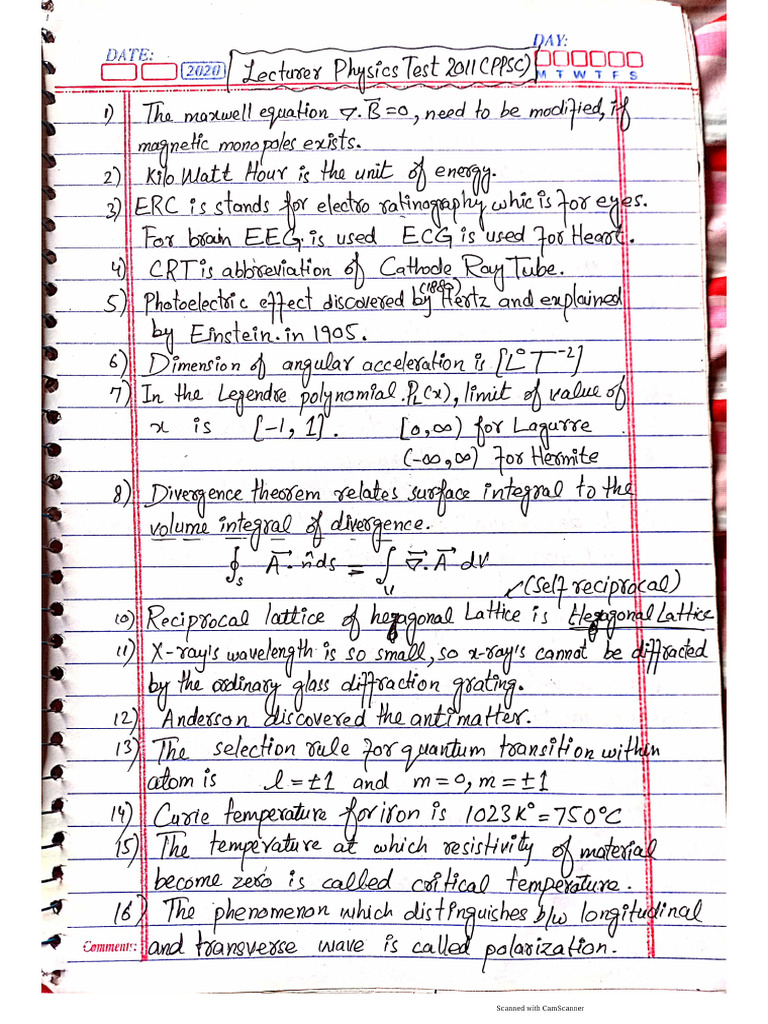 DATE: 2020 Lecturer Physics Test 2011 (PPSC) DAY:
M T W T F S
1) The maxwell equation ∇.B⃗=0, need to be modified, if
magnetic monopoles exists.
2) Kilo Watt Hour is the unit of energy.
3) ERC is stands for electro ratinography whic is for eyes.
For brain EEG. is used ECG is used for Heart.
4) CRT is abbreviation of Cathode Ray Tube.
5) Photoelectric effect discovered by Hertz and explained
by Einstein. in 1905.
6) Dimension of angular acceleration is [L°T⁻²]
7) In the Legendre polynomial. P_L(x), limit of value of
x is [-1, 1]. [0,∞) for Lagurre
(-∞,∞) for Hermite
8) Divergence theorem relates surface integral to the
volume integral of divergence.
∮s A⃗.n̂ds = ∫v ∇⃗.A⃗ dv
(Self reciprocal)
10) Reciprocal lattice of hexagonal Lattice is Hexagonal Lattice
11) X-ray's wavelength is so small, so x-ray's cannot be diffracted
by the ordinary glass diffraction grating.
12) Anderson discovered the antimatter.
13) The selection rule for quantum transition within
atom is l=±1 and m=0, m=±1
14) Curie temperature for iron is 1023K°=750°C
15) The temperature at which resistivity of material
become zero is called critical temperature.
16) The phenomenon which distinguishes b/w longitudinal
Comments: and transverse wave is called polarization.
Scanned with CamScanner